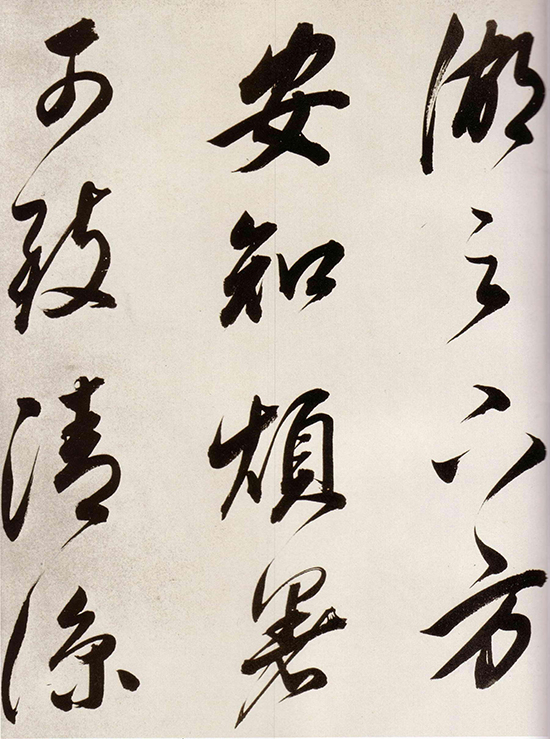 湖之下方
安知煩暑
可致清涼